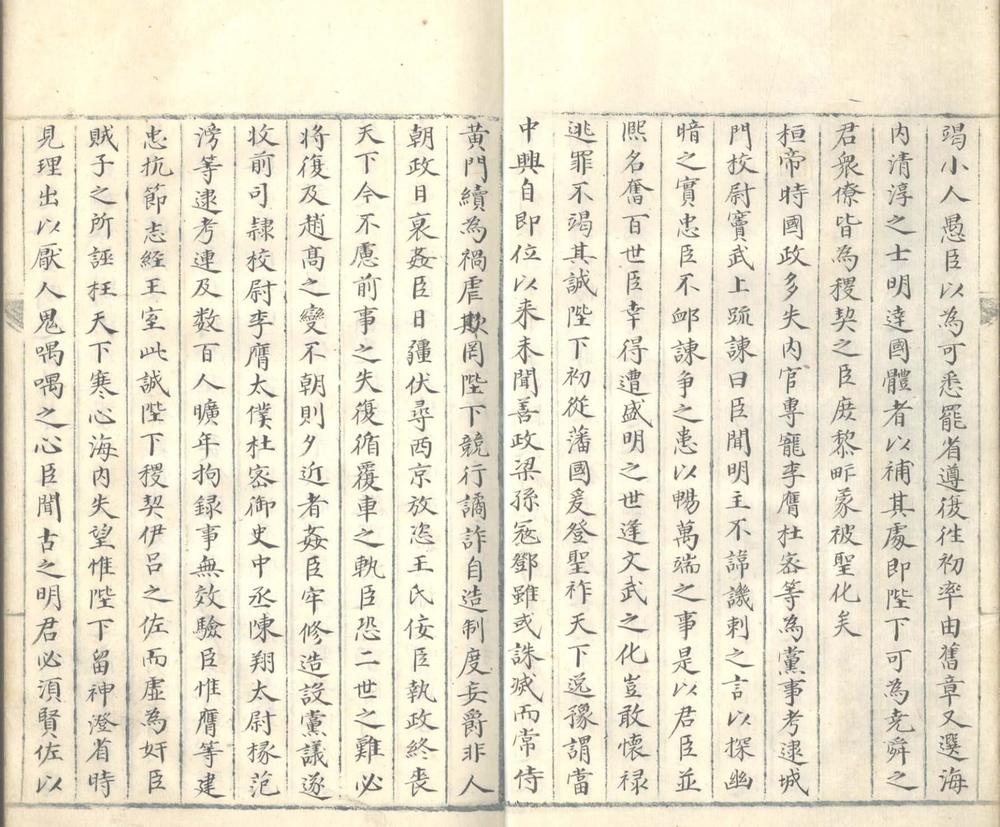 竭小人愚臣以為可悉罷省遵復徃初率由舊章又選海
内清淳之士明達國體者以補其處即陛下可為尭舜之
君衆僚皆為稷契之臣庶黎甿蒙被聖化矣
桓帝時國政多失内官專寵李膺杜宻等為黨事考逮城
門挍尉竇武上䟽諫曰臣聞明主不諱譏刺之言以探幽
暗之實忠臣不䘏諫争之患以暢萬端之事是以君臣並
熈名奮百世臣幸得遭盛明之世逢文武之化豈敢懷禄
逃罪不竭其誠陛下初從藩國爰登聖祚天下逸豫謂當
中興自即位以来未聞善政梁孫冦鄧雖或誅滅而常侍
黄門續為禍虐欺罔陛下競行譎詐自造制度妄爵非人
朝政日衰姦臣日疆伏尋西京放恣王氏佞臣執政終喪
天下今不慮前事之失復循覆車之軌臣恐二世之難必
将復及趙髙之變不朝則夕近者姦臣牢修造設黨議遂
收前司隷校尉李膺太僕杜宻御史中丞陳翔太尉掾范
滂等逮考連及数百人曠年拘録事無效驗臣惟膺等建
忠抗節志経王室此誠陛下稷契伊吕之佐而虚為奸臣
賊子之所誣枉天下寒心海内失望惟陛下留神澄省時
見理出以厭人鬼喁喁之心臣聞古之明君必須賢佐以